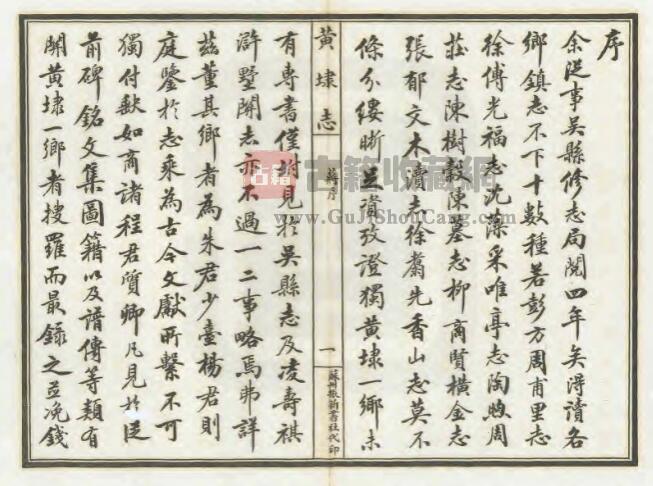 序
余從事吳縣修志局閱四年矣得讀各
鄉鎮志不下十數種若彭方周甫里志
徐傅光福志沈藻采唯亭志陶煦周
莊志陳樹穀陳墓志柳商賢橫金志
張郁文木瀆志徐翥先香山志莫不
條分縷晰並資攷證獨黃埭一鄉未
黃埭志
蔣序
一
蘇州振新書社代印
有專書僅附見於吳縣志及凌壽祺
滸墅關志亦不過一二事略焉弗詳
茲董其鄉者為朱君少臺楊君則
庭鑒於志乘為古今文獻所繫不可
獨付缺如商諸程君質卿凡見於從
前碑銘文集圖籍以及譜傳等類有
關黃埭一鄉者搜羅而最錄之並浼錢
古籍
古籍收藏網
www.GuJiShouCang.com